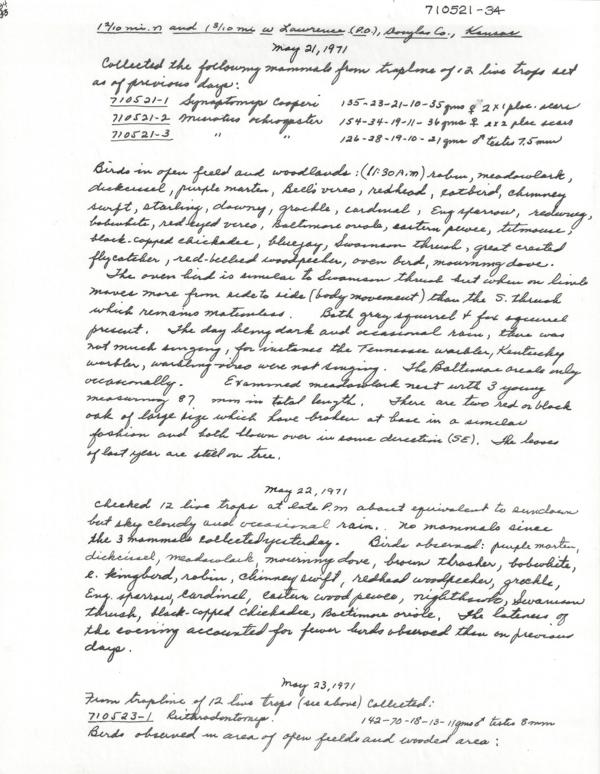 710521-34
1 2/10 mi. n and 1 3/10 mi w Lawrence (P.O.), Douglas Co., Kansas
May 21, 1971
Collected the following mammals from trapline of 12 live traps set
as of previous days:
710521-1 Synaptomys Cooperi 135-23-21-10-35gms ♀ 2x1 plac. scars
710521-2 Microtus ochrogaster 154-34-19-11-36gms ♀ 2x2 plac scars
710521-3 " " 126-28-19-10-21gms ♂ testes 7.5mm
Birds in open field and woodlands: (11:30 A.m) robin, meadowlark,
dickcissel, purple martin, Bell's vireo, redhead, catbird, chimney
swift, starling, downy, grackle, cardinal, Eng sparrow, redwing,
bobwhite, red-eyed vireo, Baltimore oriole, eastern pewee, titmouse,
black-capped chickadee, bluejay, Swainson thrush, great crested
flycatcher, red-bellied woodpecker, oven bird, mourning dove.
The oven bird is similar to Swainson thrush but when on limb
moves more from side to side (body movement) than the S. thrush
which remains motionless. Both gray squirrel & fox squirrel
present. The day being dark and occasional rain, there was
not much singing, for instance the Tennessee warbler, Kentucky
warbler, warbling vireo were not singing. The Baltimore oriole only
occasionally. Examined meadowlark nest with 3 young
measuring 87 mm in total length. There are two red or black
oak of large size which have broken at base in a similar
fashion and both blown over in same direction (SE). The leaves
of last year are still on tree.
May 22, 1971
Checked 12 live traps at late P.m about equivalent to sundown
but sky cloudy and occasional rain. No mammals since
the 3 mammals collected yesterday. Birds observed: purple martin,
dickcissel, meadowlark, mourning dove, brown thrasher, bobwhite,
e. kingbird, robin, chimney swift, redhead woodpecker, grackle,
Eng. sparrow, cardinal, eastern wood pewee, nighthawk, Swainson
thrush, black-capped chickadee, Baltimore oriole. The lateness of
the evening accounted for fewer birds observed than on previous
days.
May 23, 1971
From trapline of 12 live traps (see above) Collected:
710523-1 Reithrodontomys 142-70-18-13-11gms ♂ testes 8mm
Birds observed in area of open fields and wooded area: